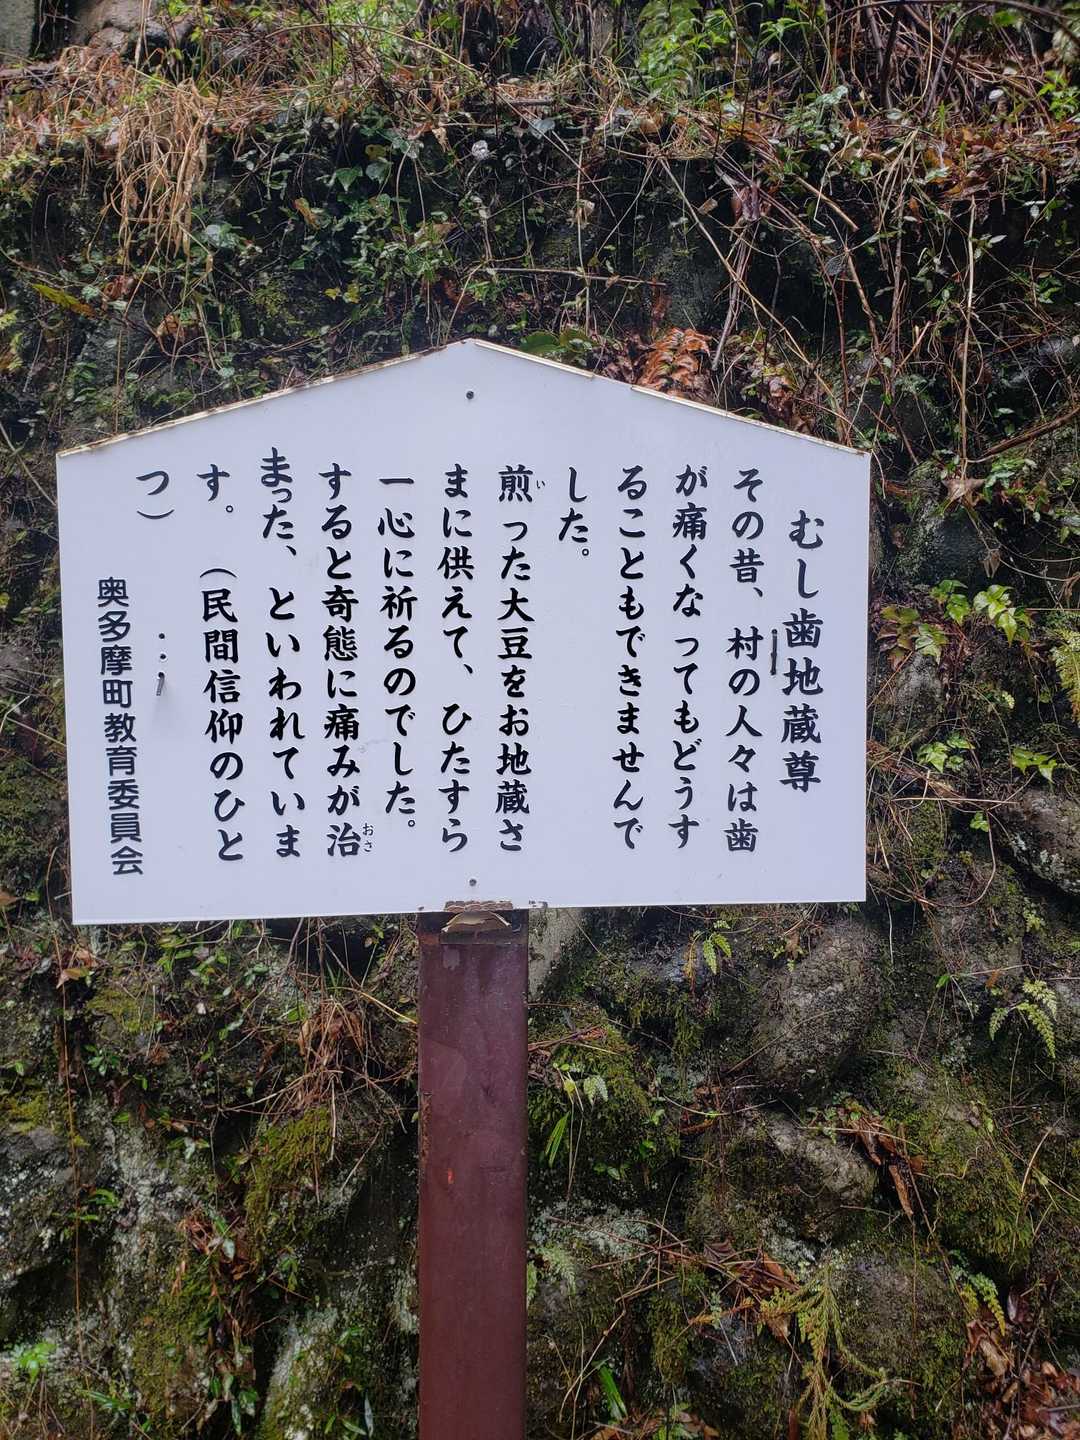 むし歯地蔵尊
その昔、村の人々は歯
が痛くなってもどうす
ることもできませんで
した。
煎った大豆をお地蔵さ
い
まに供えて、ひたすら
一心に祈るのでした。
すると奇態に痛みが治
おさ
まった、といわれていま
す。（民間信仰のひと
つ）
奥多摩町教育委員会